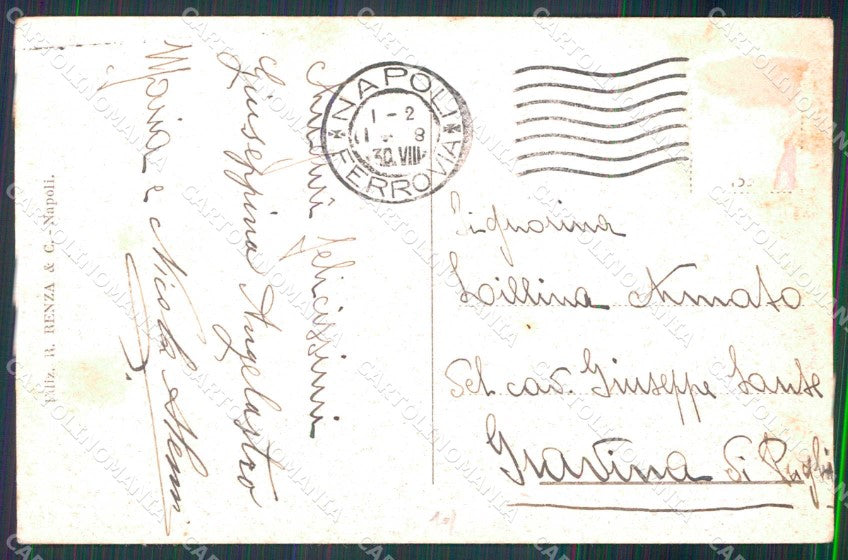 Auguri felicissimi
Giuseppina Angelastro
Maria e Nicola
Ediz. R. RENZA & C. - Napoli.
NAPOLI
1 - 2
30.VIII
FERROVIA
Signorina
Lillina Amato
Del cav. Giuseppe Sante
Gravina di Puglia
CARTOLINOMANIA